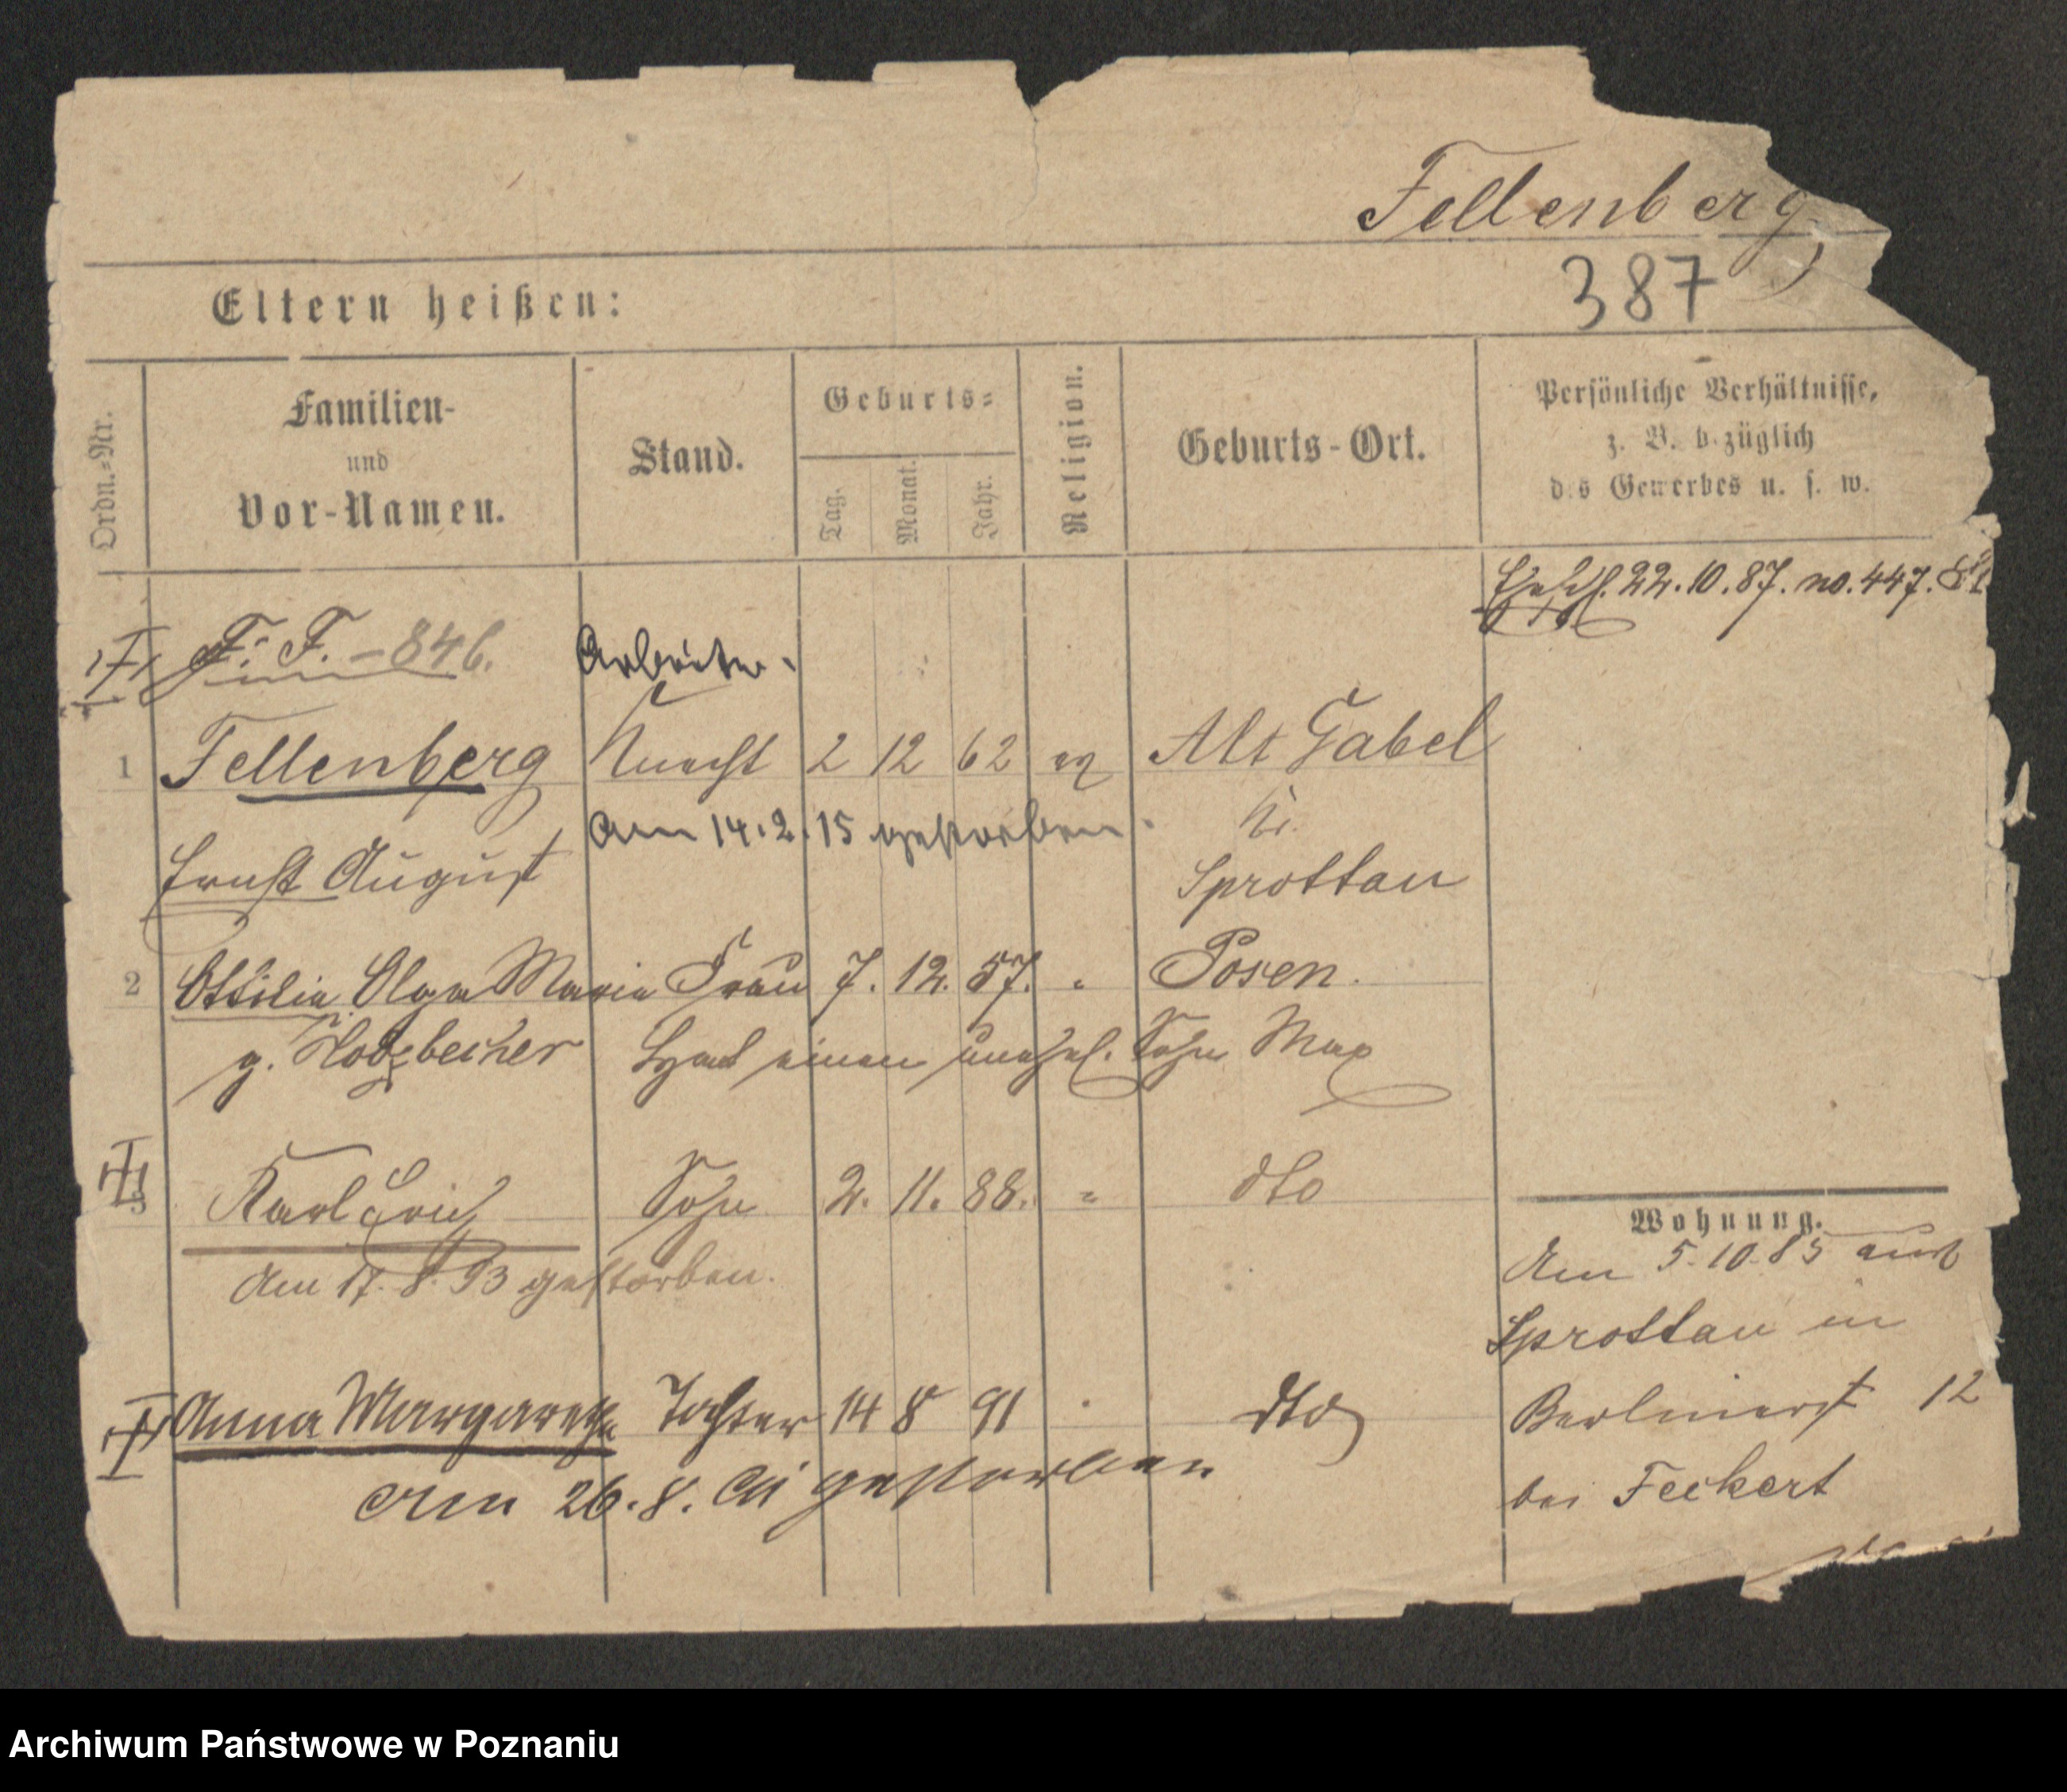 Fellenberg
387
Eltern heißen:
Ordn.-Nr.
Familien-
und
Vor-Namen.
Stand.
Geburts-
Tag.
Monat.
Jahr.
Religion.
Geburts-Ort.
Persönliche Verhältnisse,
z. B. bezüglich
des Gewerbes u. s. w.
22.10.87. no. 447.
F. F. - 846. Arbeiter.
1 Fellenberg Knecht 2 12 62 ev Alt Gabel
am 14.2.15 gestorben. Kr.
Ernst August Sprottau
2 Ottilie Olga Marie Frau 7. 12. 57. " Posen.
g. Holzbecher Hat einen unehel. Sohn Max
3 Karl Erich Sohn 2. 11. 88. " dto
Am 17. 8. 93 gestorben.
Anna Margarethe Tochter 14 8 91 " dto
Am 26.8. gestorben
Wohnung.
Am 5.10.85 aus
Sprottau in
Berlinerst 12
bei Feckert
Archiwum Państwowe w Poznaniu